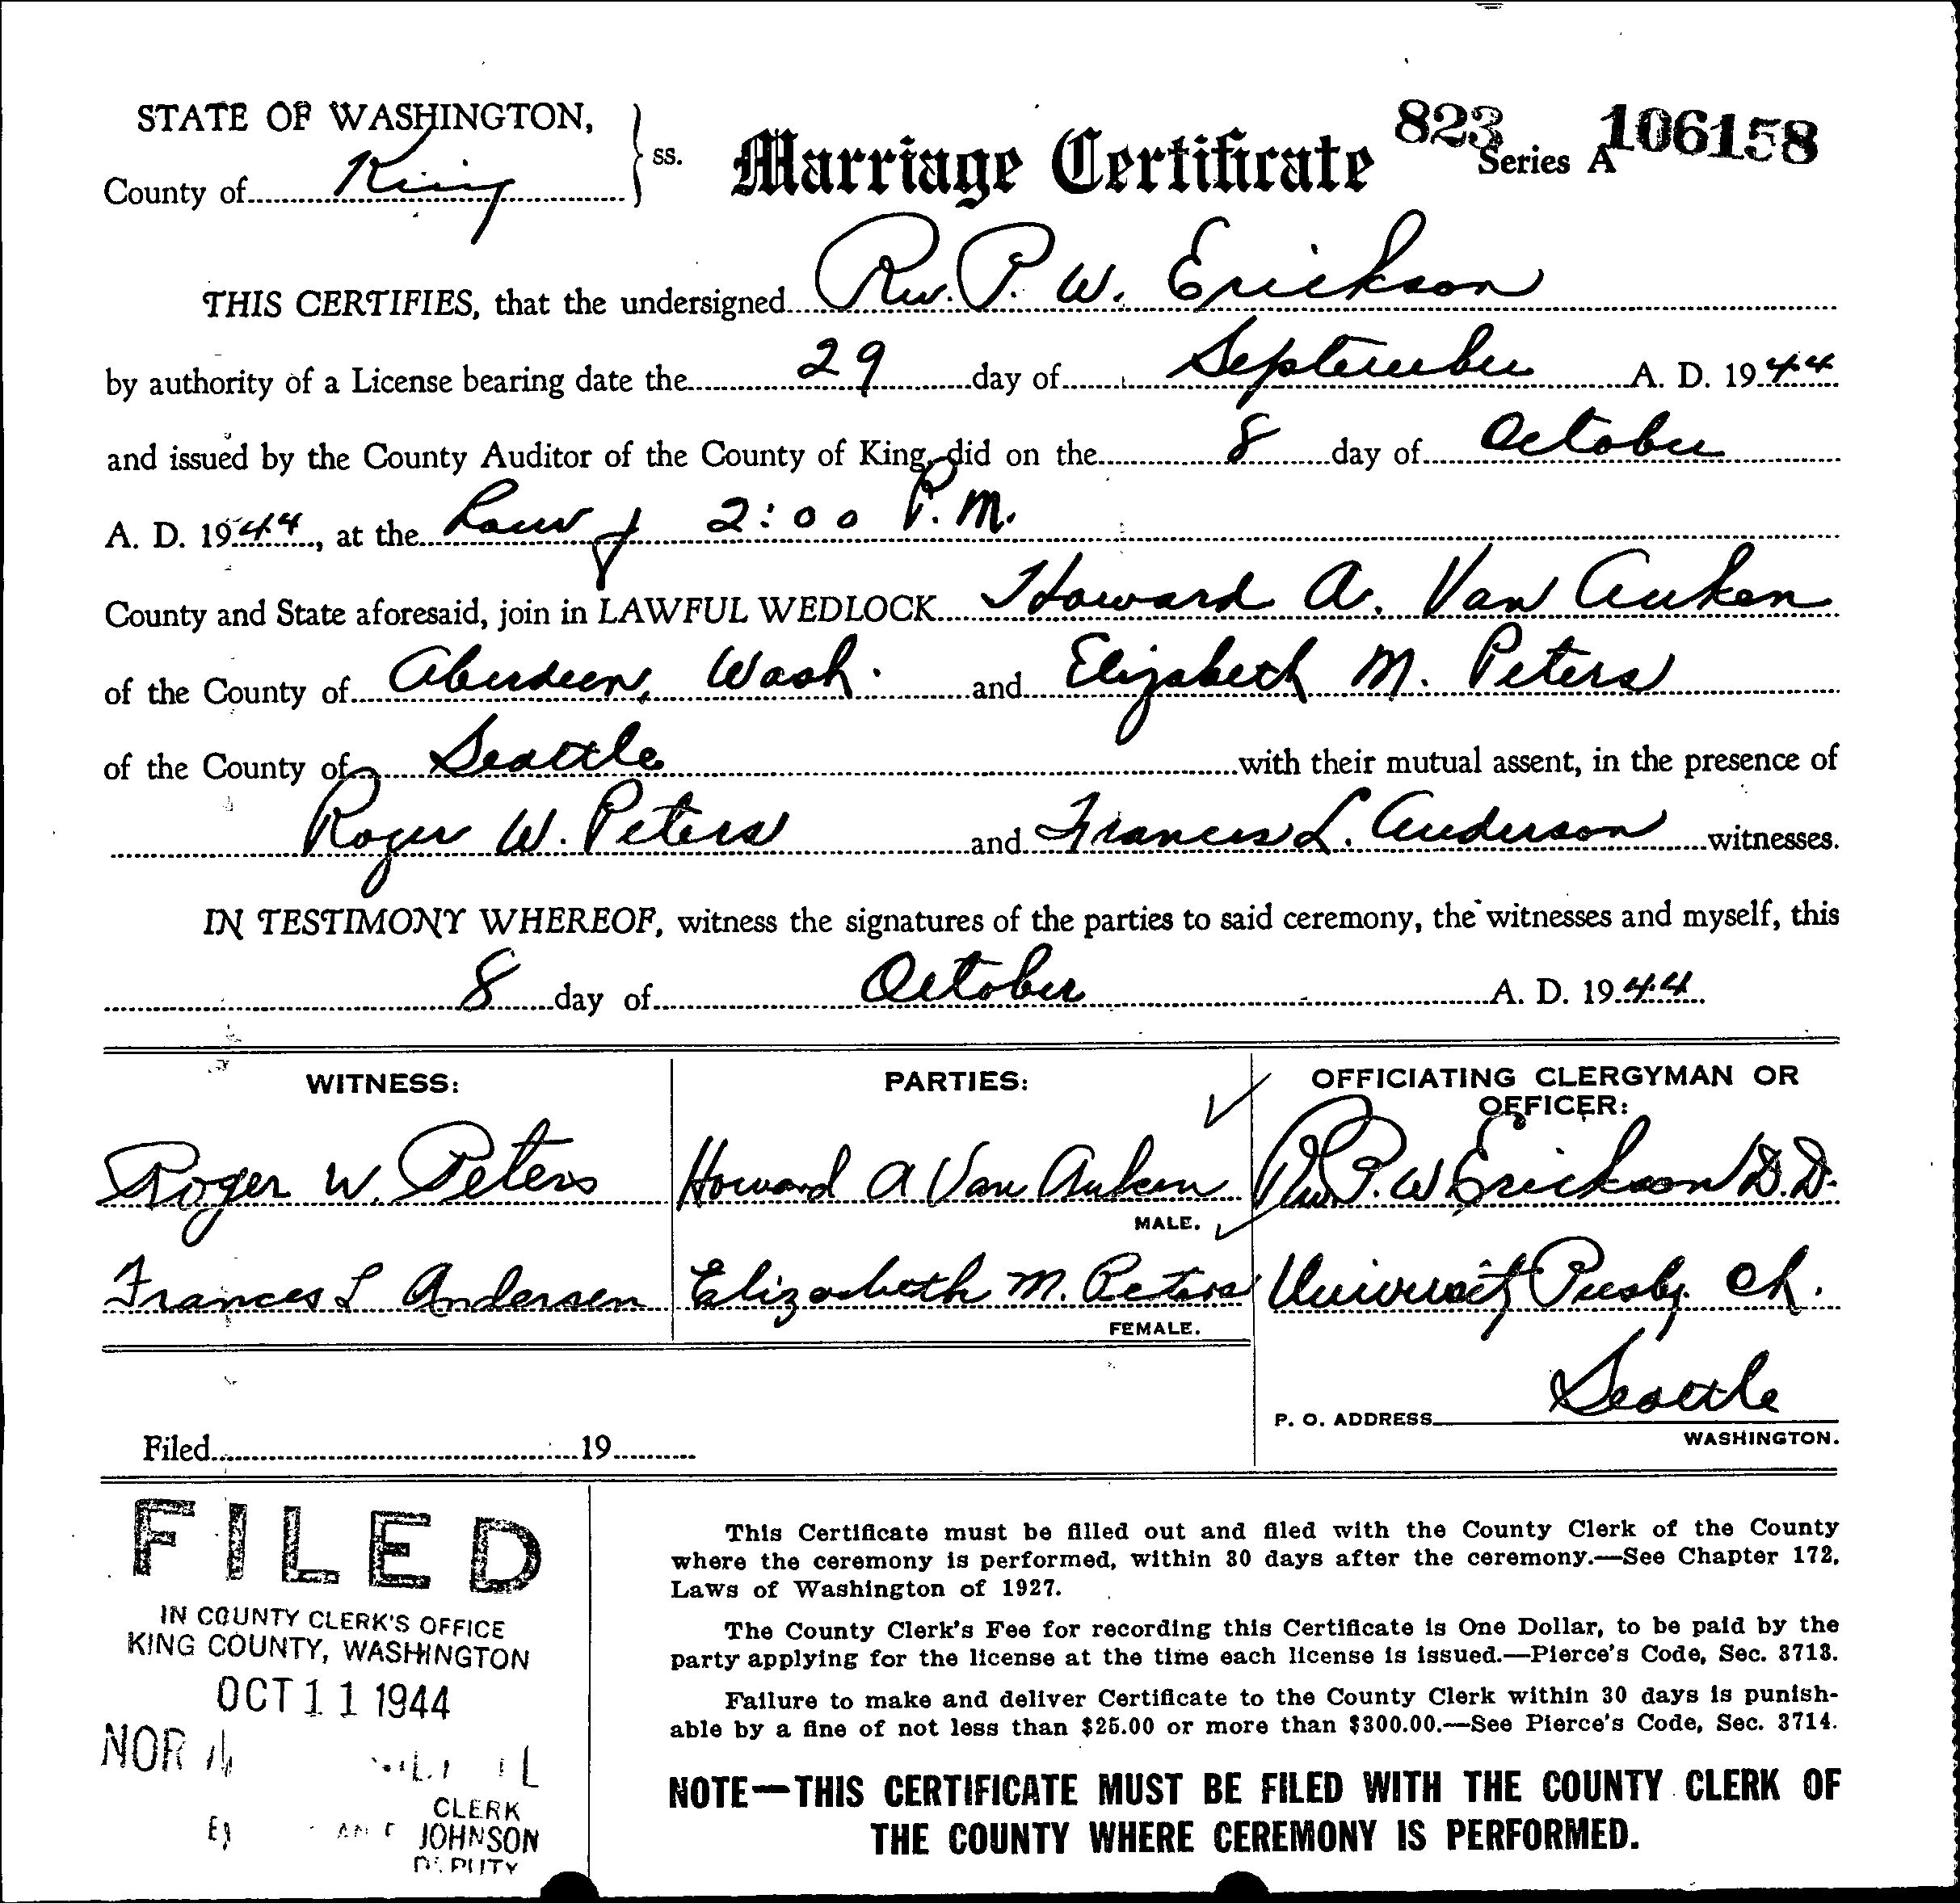 STATE OF WASHINGTON,
County of King
ss.
Marriage Certificate
823 Series A 106158
THIS CERTIFIES, that the undersigned Rev. P. W. Erickson
by authority of a License bearing date the 29 day of September A. D. 1944
and issued by the County Auditor of the County of King, did on the 8 day of October
A. D. 1944, at the hour of 2:00 P.M.
County and State aforesaid, join in LAWFUL WEDLOCK Howard A. Van Auken
of the County of Aberdeen, Wash. and Elizabeth M. Peters
of the County of Seattle with their mutual assent, in the presence of
Roger W. Peters and Frances L. Anderson witnesses.
IN TESTIMONY WHEREOF, witness the signatures of the parties to said ceremony, the witnesses and myself, this
8 day of October A. D. 1944
WITNESS:
Roger W. Peters
Frances L Andersen
PARTIES:
Howard A Van Auken
MALE.
Elizabeth M. Peters
FEMALE.
OFFICIATING CLERGYMAN OR
OFFICER:
Rev P. W Erickson D.D.
University Presby. Ch.
Seattle
P. O. ADDRESS
WASHINGTON.
Filed 19
FILED
IN COUNTY CLERK'S OFFICE
KING COUNTY, WASHINGTON
OCT 11 1944
CLERK
JOHNSON
DEPUTY
This Certificate must be filled out and filed with the County Clerk of the County
where the ceremony is performed, within 30 days after the ceremony.—See Chapter 172,
Laws of Washington of 1927.
The County Clerk's Fee for recording this Certificate is One Dollar, to be paid by the
party applying for the license at the time each license is issued.—Pierce's Code, Sec. 3713.
Failure to make and deliver Certificate to the County Clerk within 30 days is punish-
able by a fine of not less than $25.00 or more than $300.00.—See Pierce's Code, Sec. 3714.
NOTE—THIS CERTIFICATE MUST BE FILED WITH THE COUNTY CLERK OF
THE COUNTY WHERE CEREMONY IS PERFORMED.